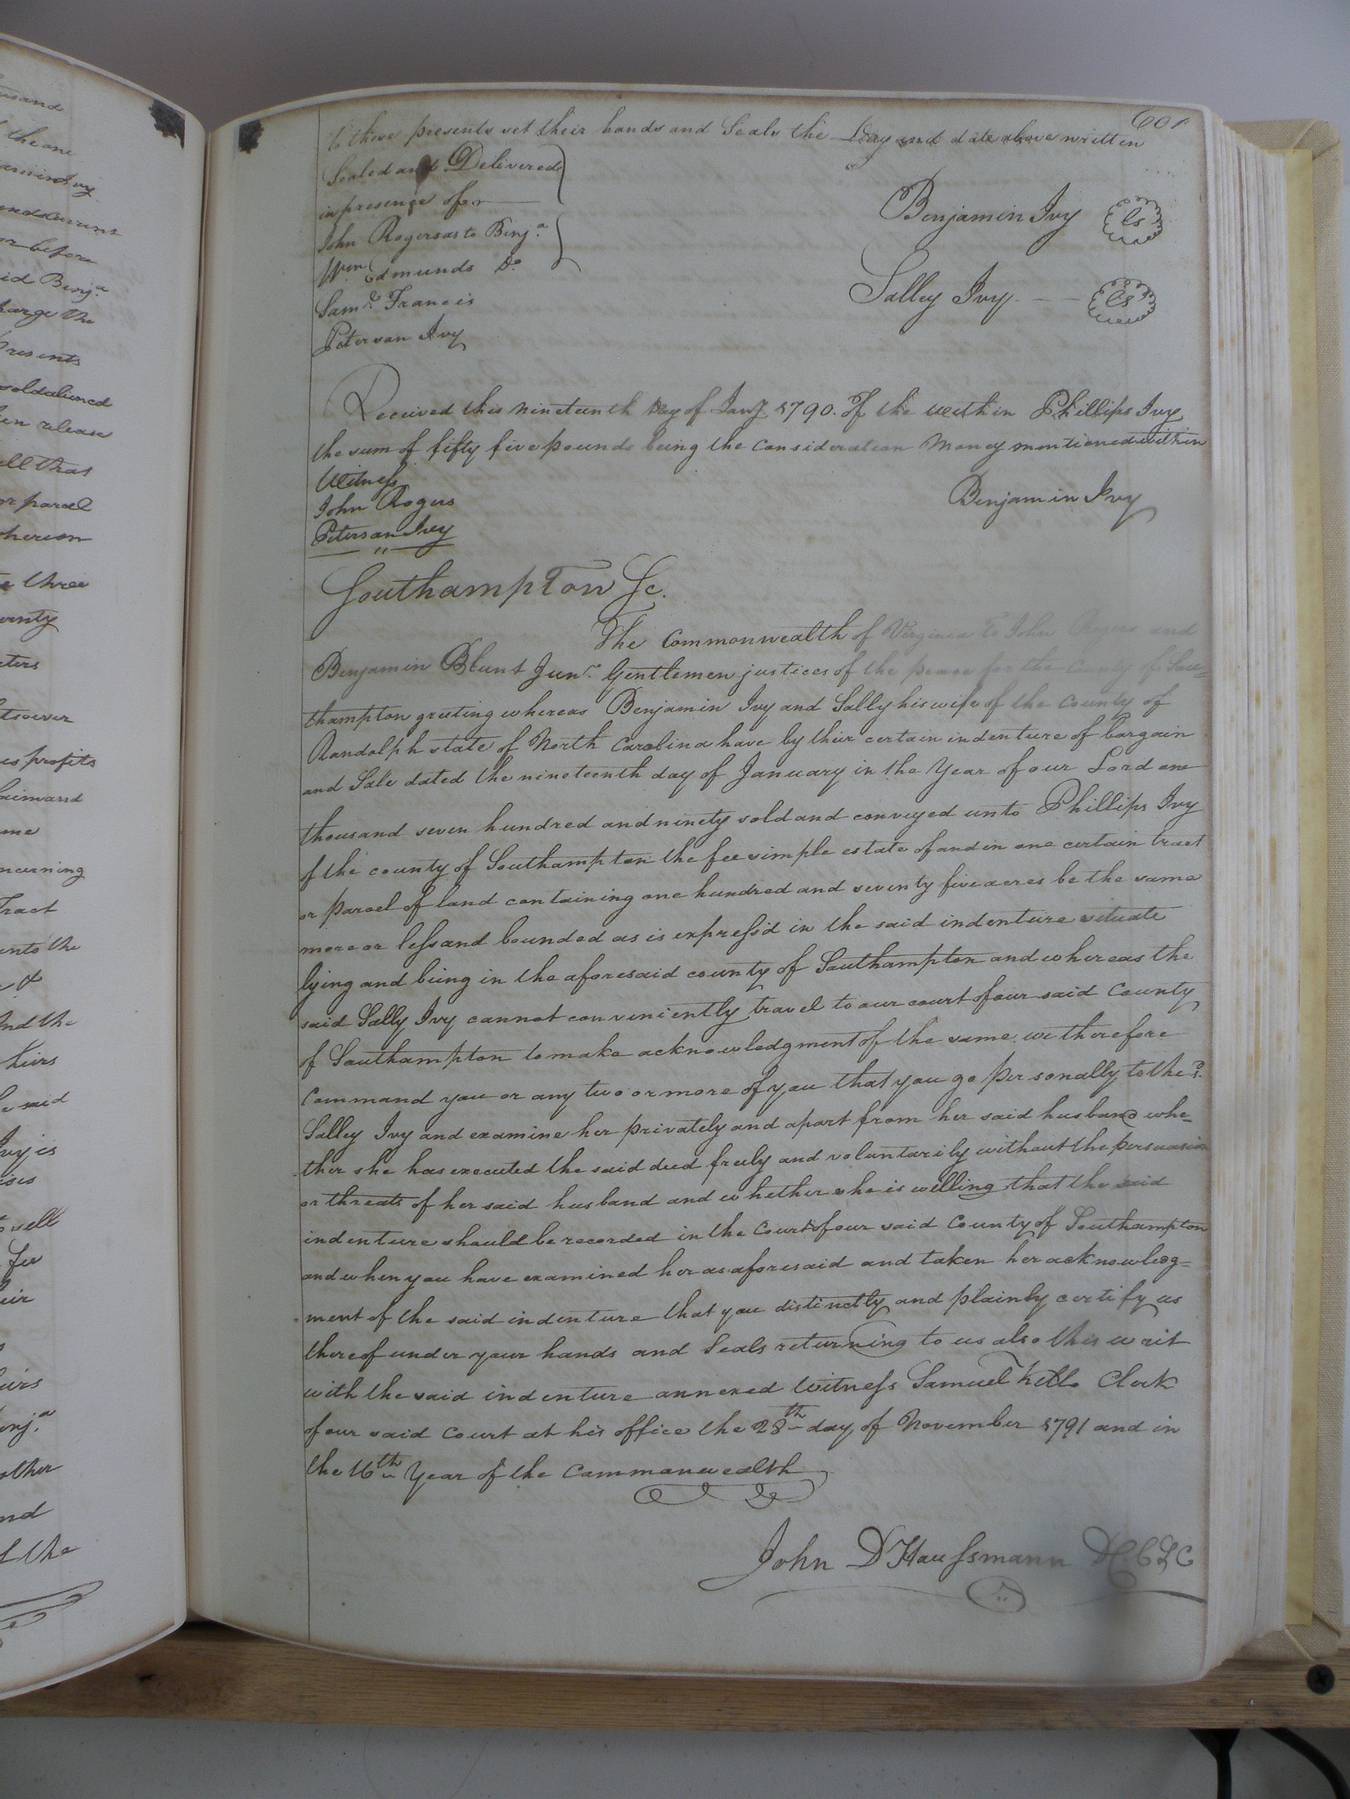 601
to these presents set their hands and Seals the Day and date above written
Sealed and Delivered
in presence of
John Rogers as to Benj.a
Wm Edmunds Do
Saml. Francis
Peterson Ivy
Benjamin Ivy Ls
Salley Ivy Ls
Received this nineteenth Day of Jany 1790. Of the within Phillips Ivy
the sum of fifty five pounds being the Consideration Money mentioned within
Witness
John Rogers
Peterson Ivy
Benjamin Ivy
Southampton Sc.
The Commonwealth of Virginia To John Rogers and
Benjamin Blunt Junr. Gentlemen justices of the peace for the County of Sou=
thampton greeting whereas Benjamin Ivy and Sally his wife of the County of
Randolph state of North Carolina have by their certain indenture of bargain
and Sale dated the nineteenth day of January in the Year of our Lord one
thousand seven hundred and ninety sold and conveyed unto Phillips Ivy
of the county of Southampton the fee simple estate of and in one certain tract
or parcel of land containing one hundred and seventy five acres be the same
more or less and bounded as is express'd in the said indenture situate
lying and being in the aforesaid county of Southampton and whereas the
said Sally Ivy cannot conveniently travel to our court of our said County
of Southampton to make acknowledgment of the same, we therefore
Command you or any two or more of you that you go personally to the sd.
Salley Ivy and examine her privately and apart from her said husband whe=
ther she has executed the said deed freely and voluntarily without the persuasion
or threats of her said husband and whether she is willing that the said
indenture should be recorded in the Court of our said County of Southampton
and when you have examined her as aforesaid and taken her acknowledg=
ment of the said indenture that you distinctly and plainly certify us
thereof under your hands and Seals returning to us also this writ
with the said indenture annexed Witness Samuel Kello Clerk
of our said Court at his office the 28th day of November 1791 and in
the 16th Year of the Commonwealth
John D Haussmann D.C.S.C